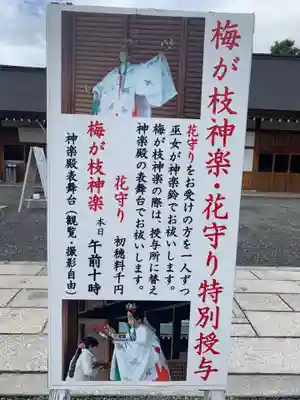 梅が枝神楽・花守り特別授与
花守りをお受けの方を一人ずつ
巫女が神楽鈴でお祓いします。
梅が枝神楽の際は、授与所に替え
神楽殿の表舞台でお祓いします。
花守り 初穂料千円
梅が枝神楽 本日 午前十時
神楽殿表舞台（観覧・撮影自由）